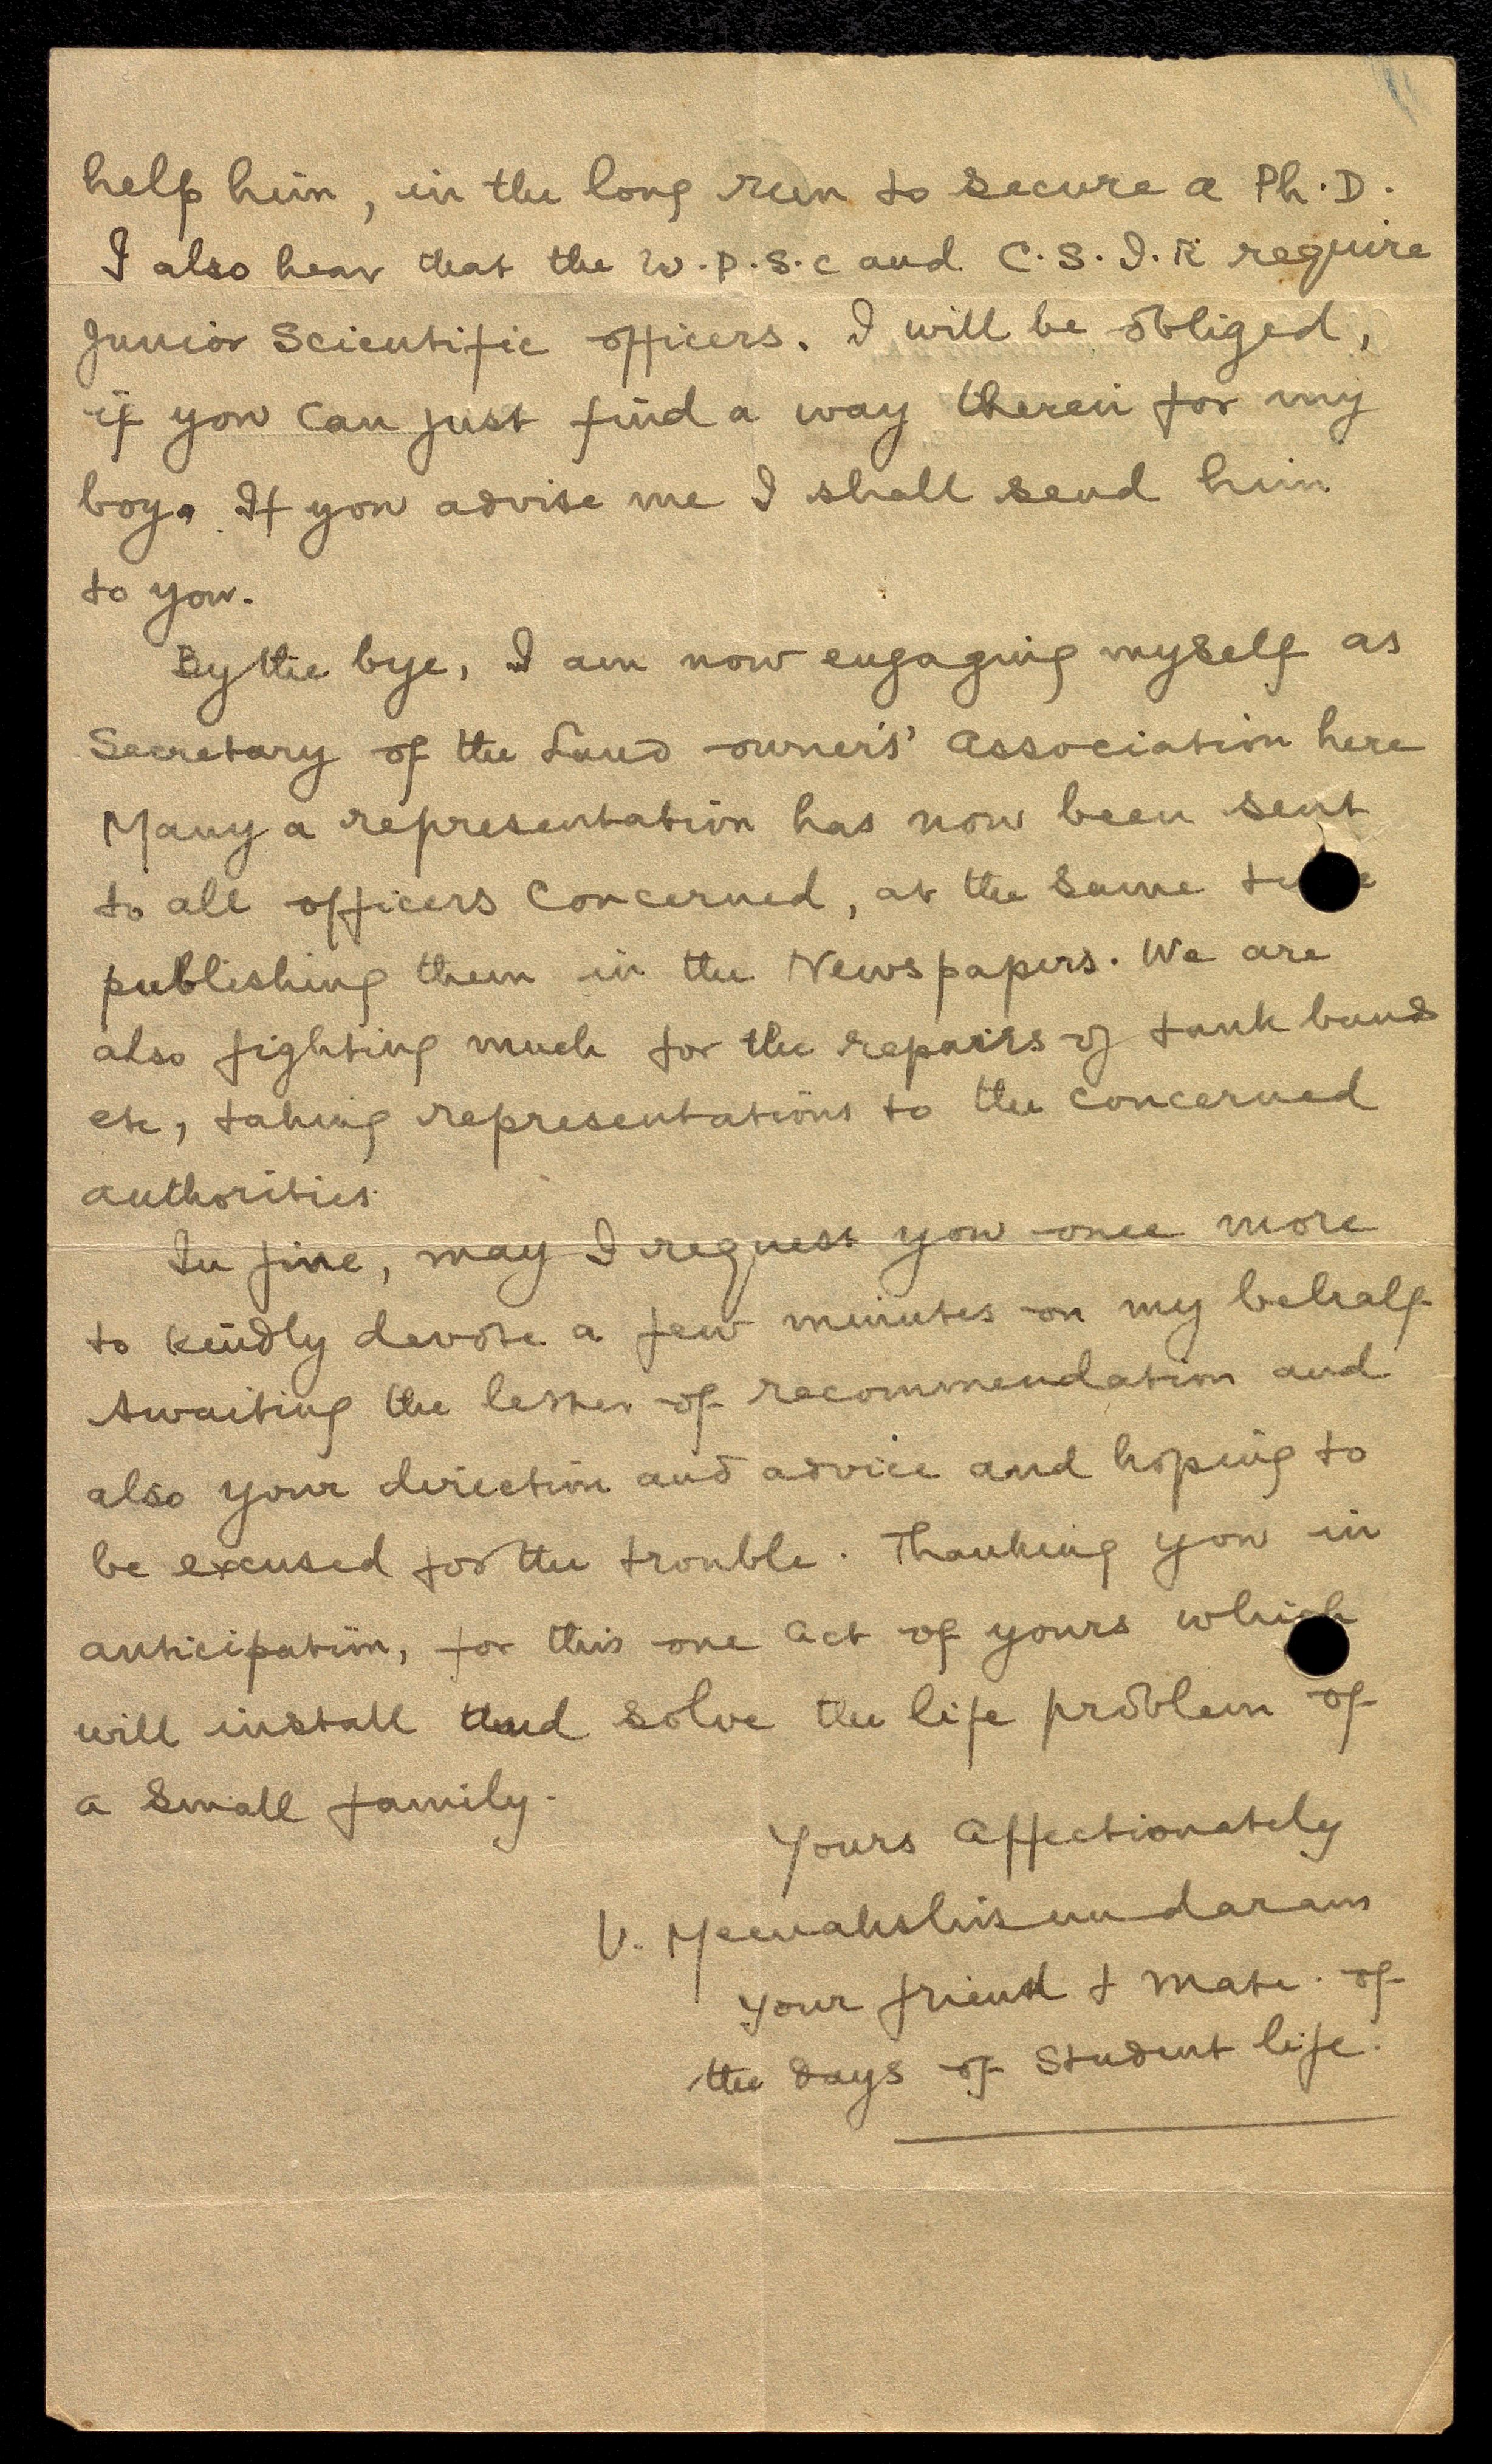 help him, in the long run to secure a Ph.D.
I also hear that the W.P.S.C and C.S.I.R require
Junior Scientific officers. I will be obliged,
if you can just find a way therein for my
boy. If you advise me I shall send him
to you.
By the bye, I am now engaging myself as
Secretary of the Land owner's' Association here
Many a representation has now been sent
to all officers concerned, at the same time
publishing them in the Newspapers. We are
also fighting much for the repairs of tank bunds
etc, taking representations to the concerned
authorities.
In fine, may I request you once more
to kindly devote a few minutes on my behalf
Awaiting the letter of recommendation and
also your direction and advice and hoping to
be excused for the trouble. Thanking you in
anticipation, for this one act of yours which
will install and solve the life problem of
a small family.
Yours affectionately
V. Meenakshisundaram
your friend & mate. of
the days of student life.